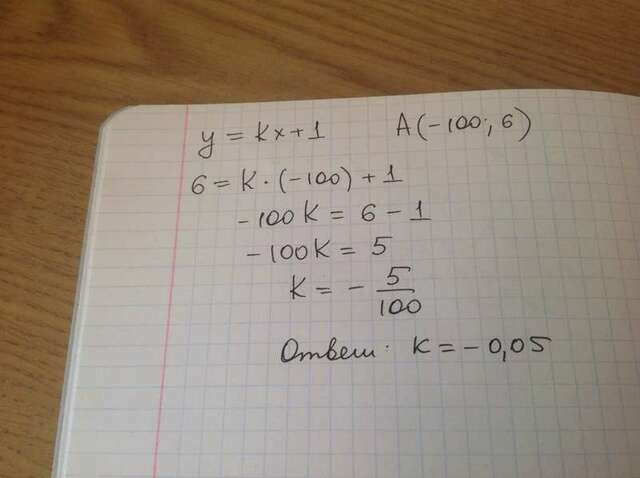 y = kx + 1 A(-100; 6)
6 = k · (-100) + 1
-100k = 6 - 1
-100k = 5
k = - 5/100
Ответ: k = - 0,05